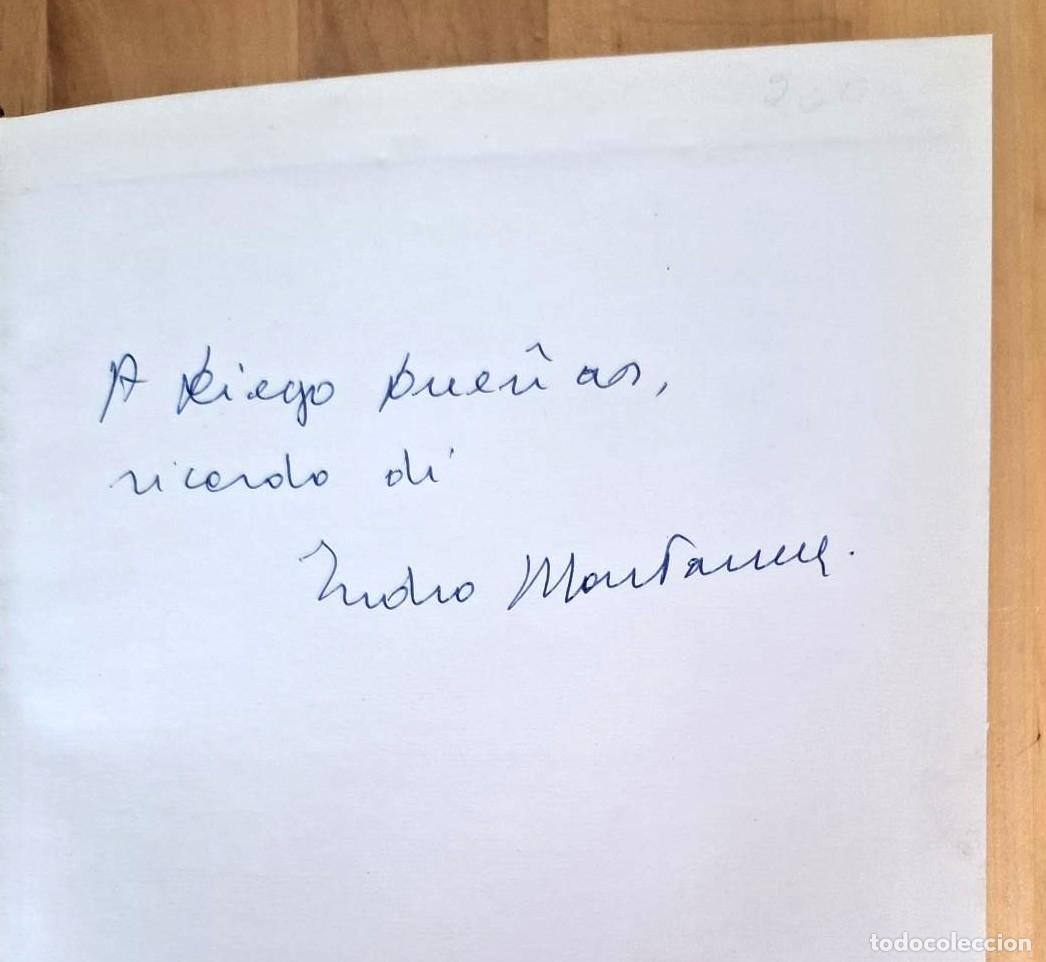 A Diego Dueñas,
ricordo di
Indro Montanelli.
todocoleccion